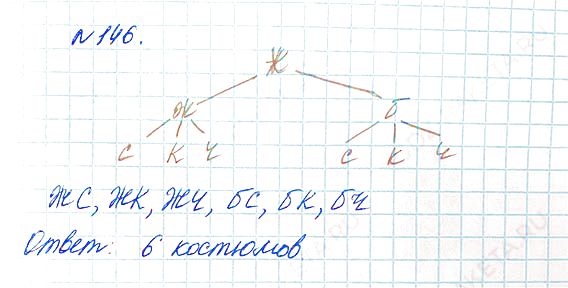 №146.
Ж
Ж Б
С К Ч С К Ч
ЖС, ЖК, ЖЧ, БС, БК, БЧ
Ответ: 6 костюмов